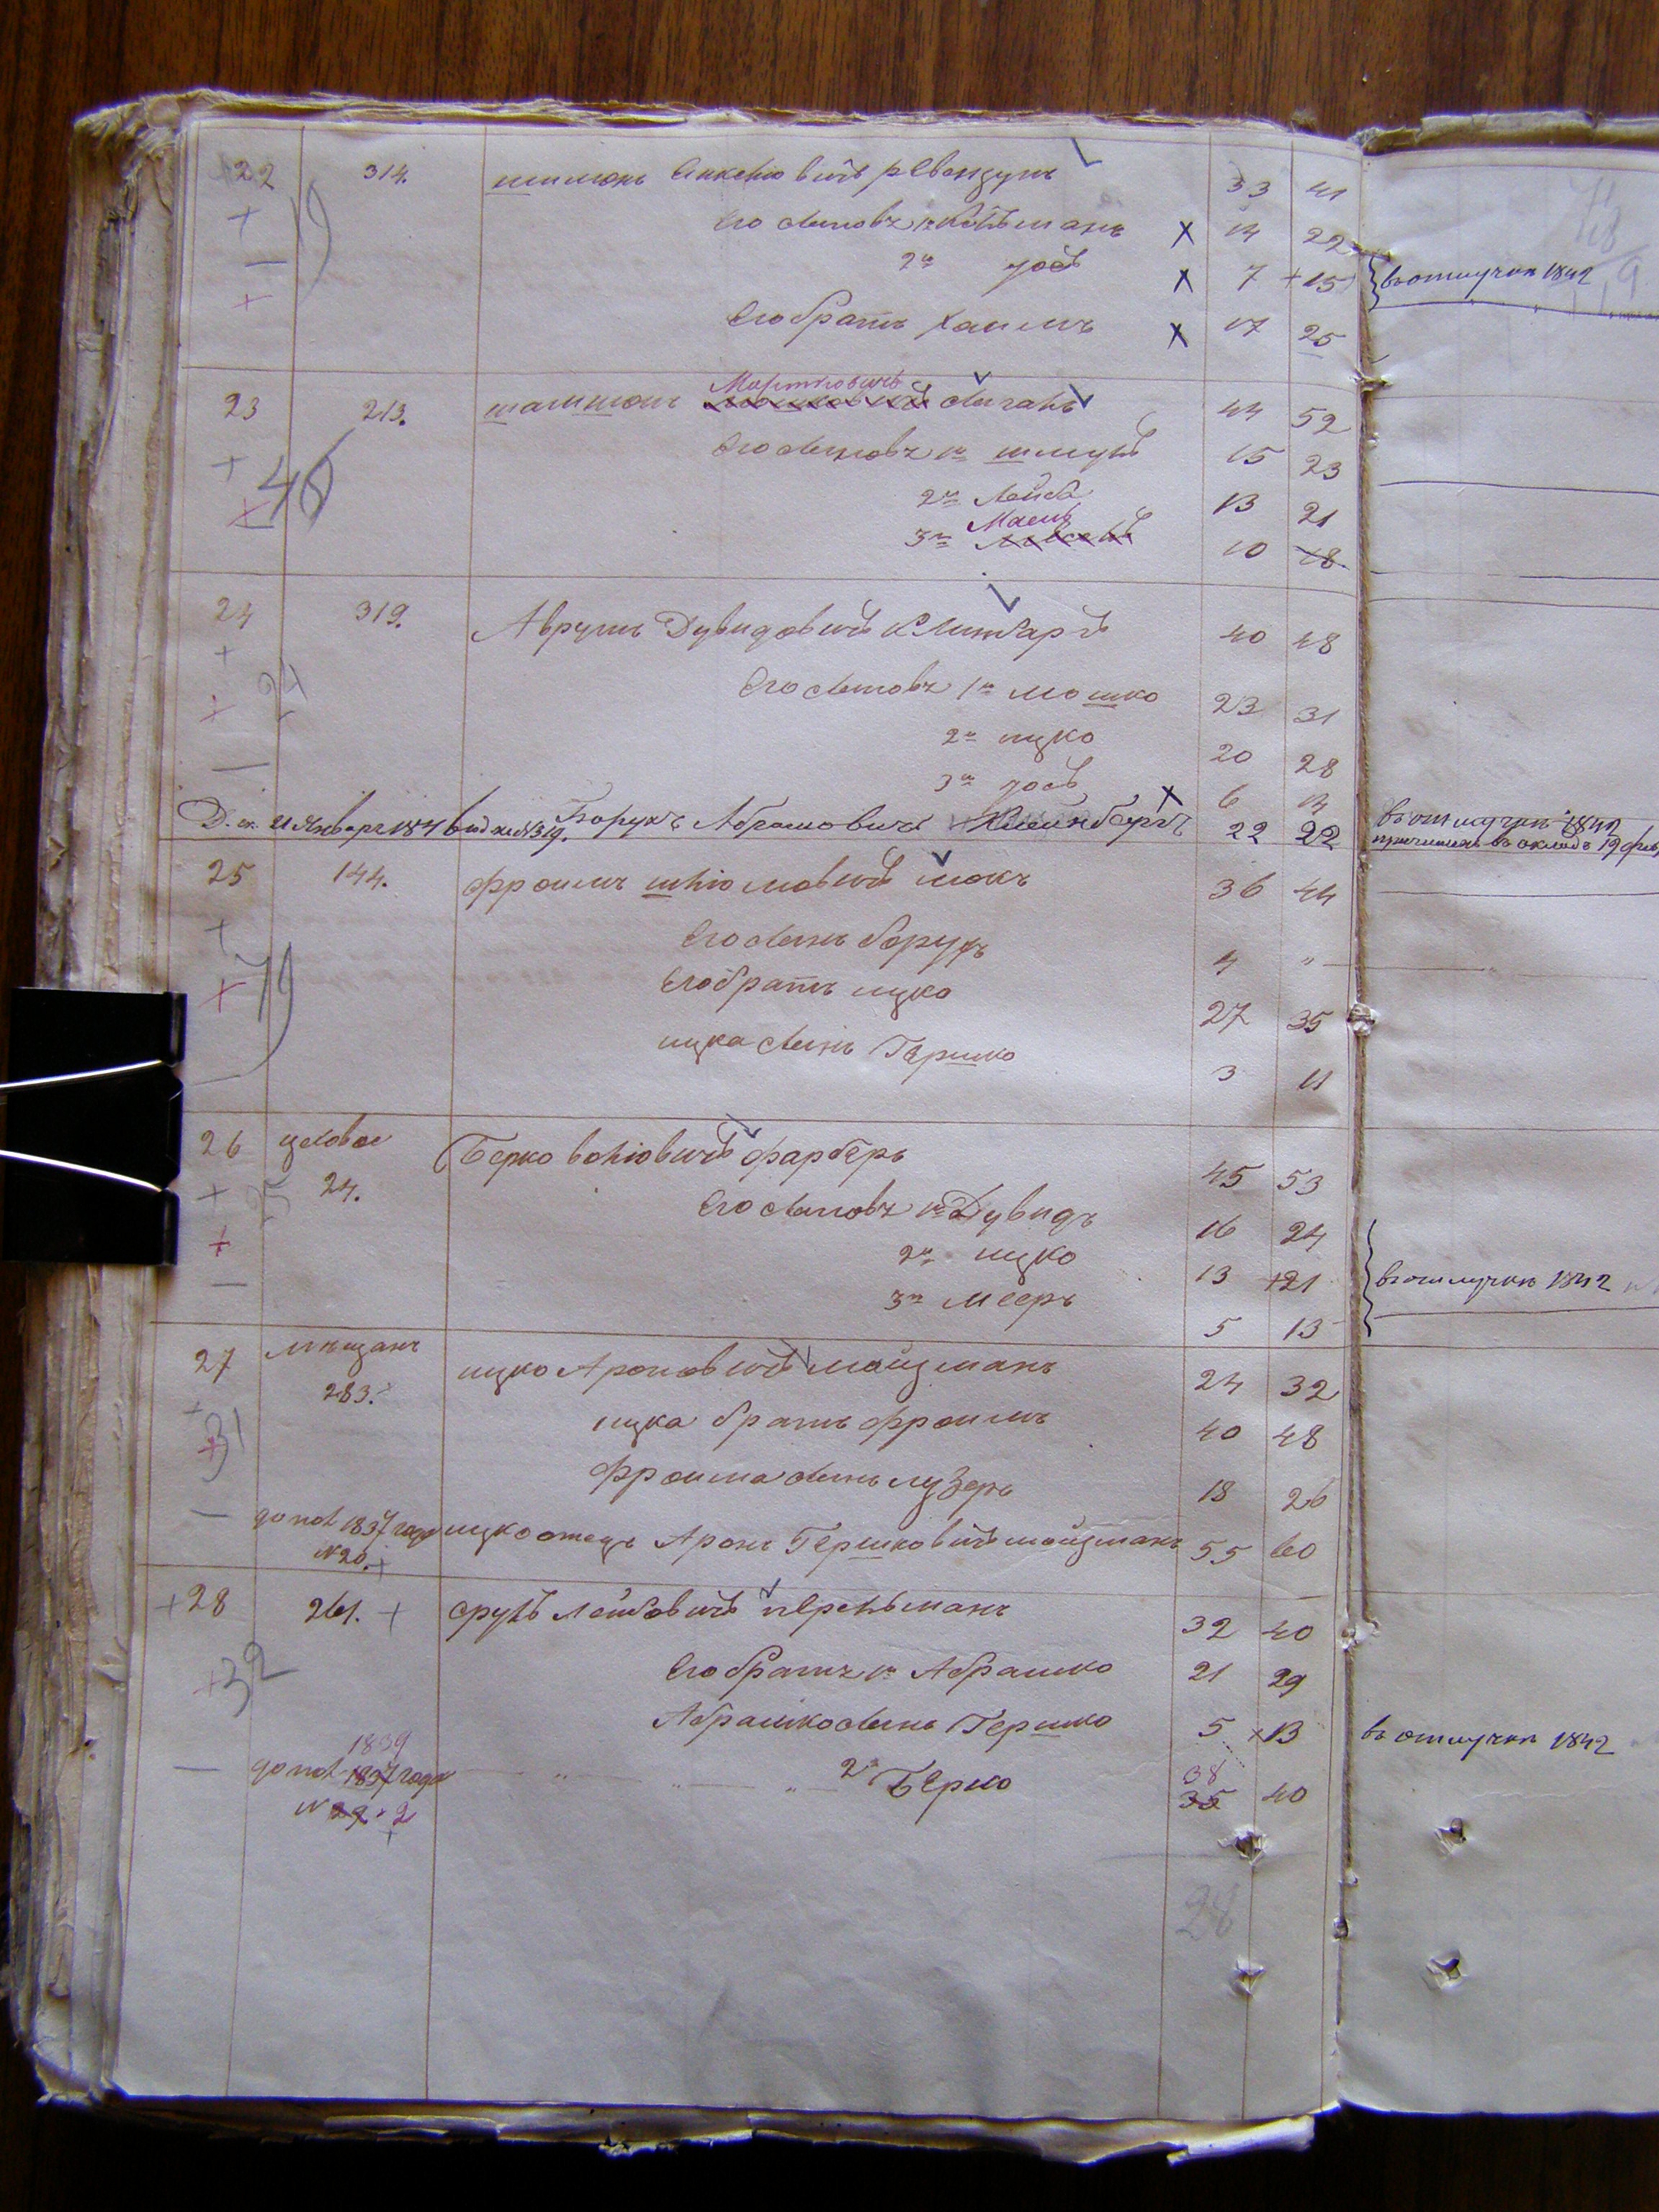 22 314. шимонъ Янкелiовичъ 33 41
Его сыновъ 1й Кельманъ Х 14 22
2й Іосъ Х 7 +15 въ отлучкѣ 1842
Его братъ Хаимъ Х 17 25
19
23 213. шамшонъ Мортковичъ 44 52
Его сыновъ 1й шмуль 15 23
46
2й Лейба 13 21
3й 10 18
24 319. Аврумъ Дувидовичъ Клинбаръ 40 48
Его сыновъ 1й Мошко 23 31
24
2й ицко 20 28
3й Іосъ Х 6 14
Д. ск. 21 Января 184 под № 319. Борухъ Абрамовичъ Клейнбергъ 22 22 въ отлучкѣ 1842
25 144. фроимъ шліомовичъ йокъ 36 44
Его сынъ борухъ 4 "
79
Его братъ ицко 27 35
ицка сынъ Гершко 3 11
26 цеховое 24. Берко волiовичъ фарберъ 45 53
Его сыновъ 1й Дувидъ 16 24
2й ицко 13 +21 въ отлучкѣ 1842
3й Мееръ 5 13
27 мѣщанъ 283. ицко Ароновичъ мойцманъ 24 32
ицка братъ фроимъ 40 48
31
фроима сынъ лузеръ 18 26
допол 1837 года №20. + ицко отецъ Аронъ Гершковичъ мойцманъ 55 60
+28 261. + сруль Лейбовичъ перельманъ 32 40
Его братъ 1й Абрашко 21 29
+32
Абрашко сынъ Гершко 5 ×13 въ отлучкѣ 1842
1839
допол 1837 года " " " 2й Берко 38 40
№ 29 2 35
28